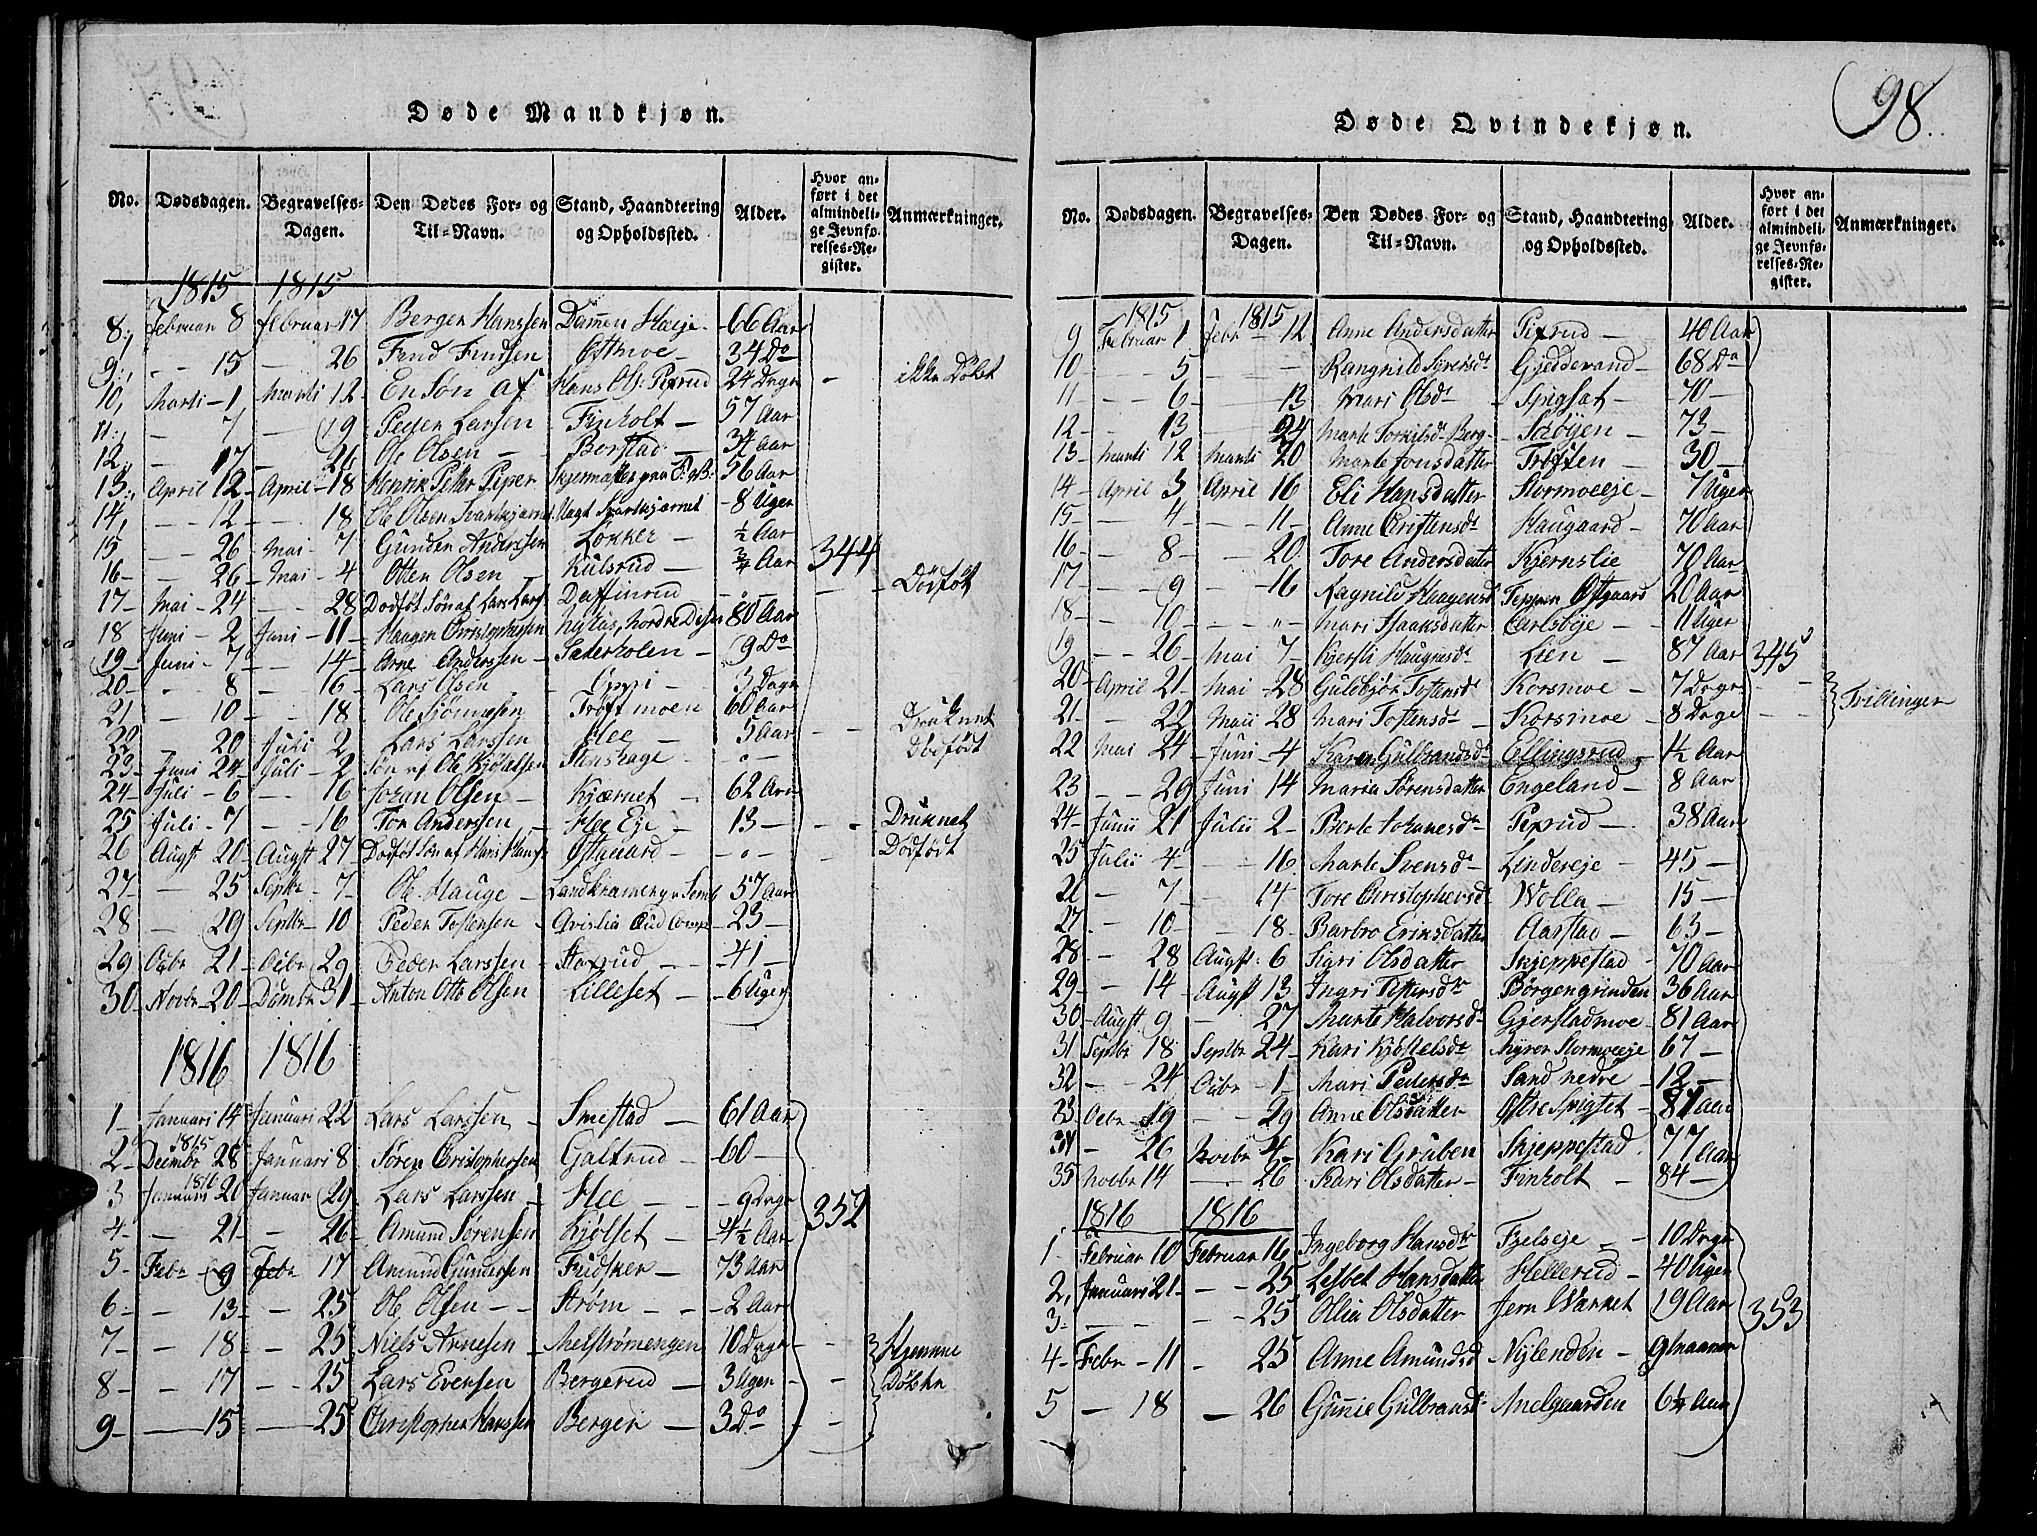 98.
Døde Mandkjøn.
No. Dødsdagen. Begravelses-Dagen. Den Dødes For- og Til-Navn. Stand, Haandtering og Opholdssted. Alder. Hvor anført i det almindelige Jevnførelses-Register. Anmærkninger.
1815 1815
8, Februar 8 februar 17 Bergen Hanssen Dammen Haeje 66 Aar
9, - 15 - 26 Østmoe 34 Do
10, Marti 1 Marti 12 En Søn af Hans Ols: Pexrud 24 Dage - ikke Døbt
11, - 7 - 19 Peder Larsen Finholt 57 Aar
12, - 17 - 26 Ole Olsen Borstad 34 Aar
13, April 12 April 18 Henrik Petter Piper 56 Aar
14, - 12 - 18 Ole Olsen Svartkjærnet 8 Uger
15 - 26 Mai 7 Gunder Anderssen Løkker ½ Aar 344
16 - 26 Mai 4 Otter Olsen Kulsrud ¾ Aar
17 Mai 24 - 28 Dødføt Søn af Lars Lars: Daffinrud - Dødføt
18 Juni 2 Juni 11 Haagen Christophersen 80 Aar
19 Juni 7 - 14 Arne Anderssen Sæterholen 9 Do
20 - 8 - 16 Lars Olsen Oppi 3 Dage
21 - 10 - 18 Ole Trøftmoen 60 Aar Druknet
22 - 20 Juli 2 Lars Larssen Hee 5 Aar
23 Juni 24 Juli 2 Søn af Ole Stenshage - Dødfødt
24 Juli 6 - 16 Johan Olsen Kjærnet 62 Aar
25 Juli 7 - 16 Tor Anderssen Hee Eje 13 - Druknet
26 Augst 20 Augst 27 Dødføt Søn af Hans Haug: Østgaard - Dødfødt
27 - 25 Septbr 7 Ole Hauge 57 Aar
28 - 29 Septbr 10 Peder Tostensen 23
29 Octbr 21 Octbr 29 Peder Larssen Stoxrud 41
30 Novbr 20 Dcmbr 31 Anton Otto Olsen Lilleset 6 Uger
1816 1816
1 Januari 14 Januari 22 Lars Larssen Smestad 61 Aar
2 1815 Decmbr 28 Januari 8 Søren Christophersen Galtrud 60
3 1816 Januari 20 Januar 29 Lars Larssen Hee 9 Dage 352
4 - 21 - 26 Amund Sørensen Kjølset 4½ Aar
5 Febr 9 Febr 17 Amund Gundersen Fudsker 73 Aar
6 - 13 - 25 Ole Olsen Strøm 2 Aar
7 - 18 - 25 Niels Arnesen Melstrømengen 10 Dage Hjemme
8 - 17 - 25 Lars Evensen Bergerud 3 Uger Døbte
9 - 15 - 25 Christopher Hanssen Berger 3 Do
Døde Qvindekjøn.
No. Dødsdagen. Begravelses-Dagen. Den Dødes For- og Til-Navn. Stand, Haandtering og Opholdssted. Alder. Hvor anført i det almindelige Jevnførelses-Register. Anmærkninger.
1815 1815
9 Februar 1 Febr 12 Anne Andersdatter Pexrud 40 Aar
10 - 5 Rangnild Syversdr Gjeddevand 68 Do
11 - 6 - 13 Mari Olsdr Spigset 70
12 - 13 - 24 Marte Torkilsd Berg 73
13 Marti 12 Marti 20 Marte Jonsdatter Trøften 30
14 April 3 April 16 Eli Hansdatter Stormoeeje 7 Uger
15 - 4 - 11 Anne Cristensdr Haugaard 70 Aar
16 - 8 - 20 Tore Andersdatter Kjernslie 70 Aar
17 - 9 - 16 Ragnild Haagensd Teppen Østgaard 20 Aar
18 - 10 - Mari Isaaksdatter Carlsbeje 11 Uger
19 - 26 Mai 7 Kjersti Haugensdr Lien 87 Aar 345
20 April 21 Mai 28 Guldbjør Tostensdr Korsmoe 7 Dage
21 - 22 Maii 28 Mari Tostensdr Korsmoe 8 Dage Tvillinger
22 Mai 24 Juni 4 Karen Gulbransdr Ellingsrud 1½ Aar
23 - 29 Juni 14 Maria Sørensdatter Engeland 8 Aar
24 Junii 21 Julii 2 Berte Johanesdr Pexrud 38 Aar
25 Julii 4 - 16 Marte Svensdr Lindereje 45
26 - 7 - 14 Tore Christophersdr Wolla 15
27 - 10 - 18 Barbro Eriksdatter Aarstad 63
28 - 28 Augst 6 Kari Olsdatter Skjeppestad 70 Aar
29 - 14 Augst 13 Ingri Børgengrinden 36 Aar
30 Augst 9 - 27 Marte Halvorsd Gjerstadmoe 81 Aar
31 Septbr 18 Septbr 24 Kari Kjøstelsdr Myrer Stormoeeje 67
32 - 24 Octbr 1 Mari Pedersdr Sand nedre 12
33 Octbr 19 - 29 Anne Olsdatter Østre Spigset 81 Aar
34 - 26 Novbr 4 Kari Gruben Skjeppestad 77 Aar
35 Novbr 14 - 26 Kari Olsdatter Finholt 84
1816 1816
1 Februar 10 Februar 16 Ingeborg Hansdr Fjelseje 10 Dage
2, Januari 21 - 25 Lisbet Hansdatter Hellerud 40 Uger
3 - - 25 Olia Olsdatter Jern Værket 19 Aar 353
4 Febr 11 - 25 Anne Amundsd Nylenden 9 Maaner
5 - 18 - 26 Gunie Gulbransdr Melgaarden 6¼ Aar